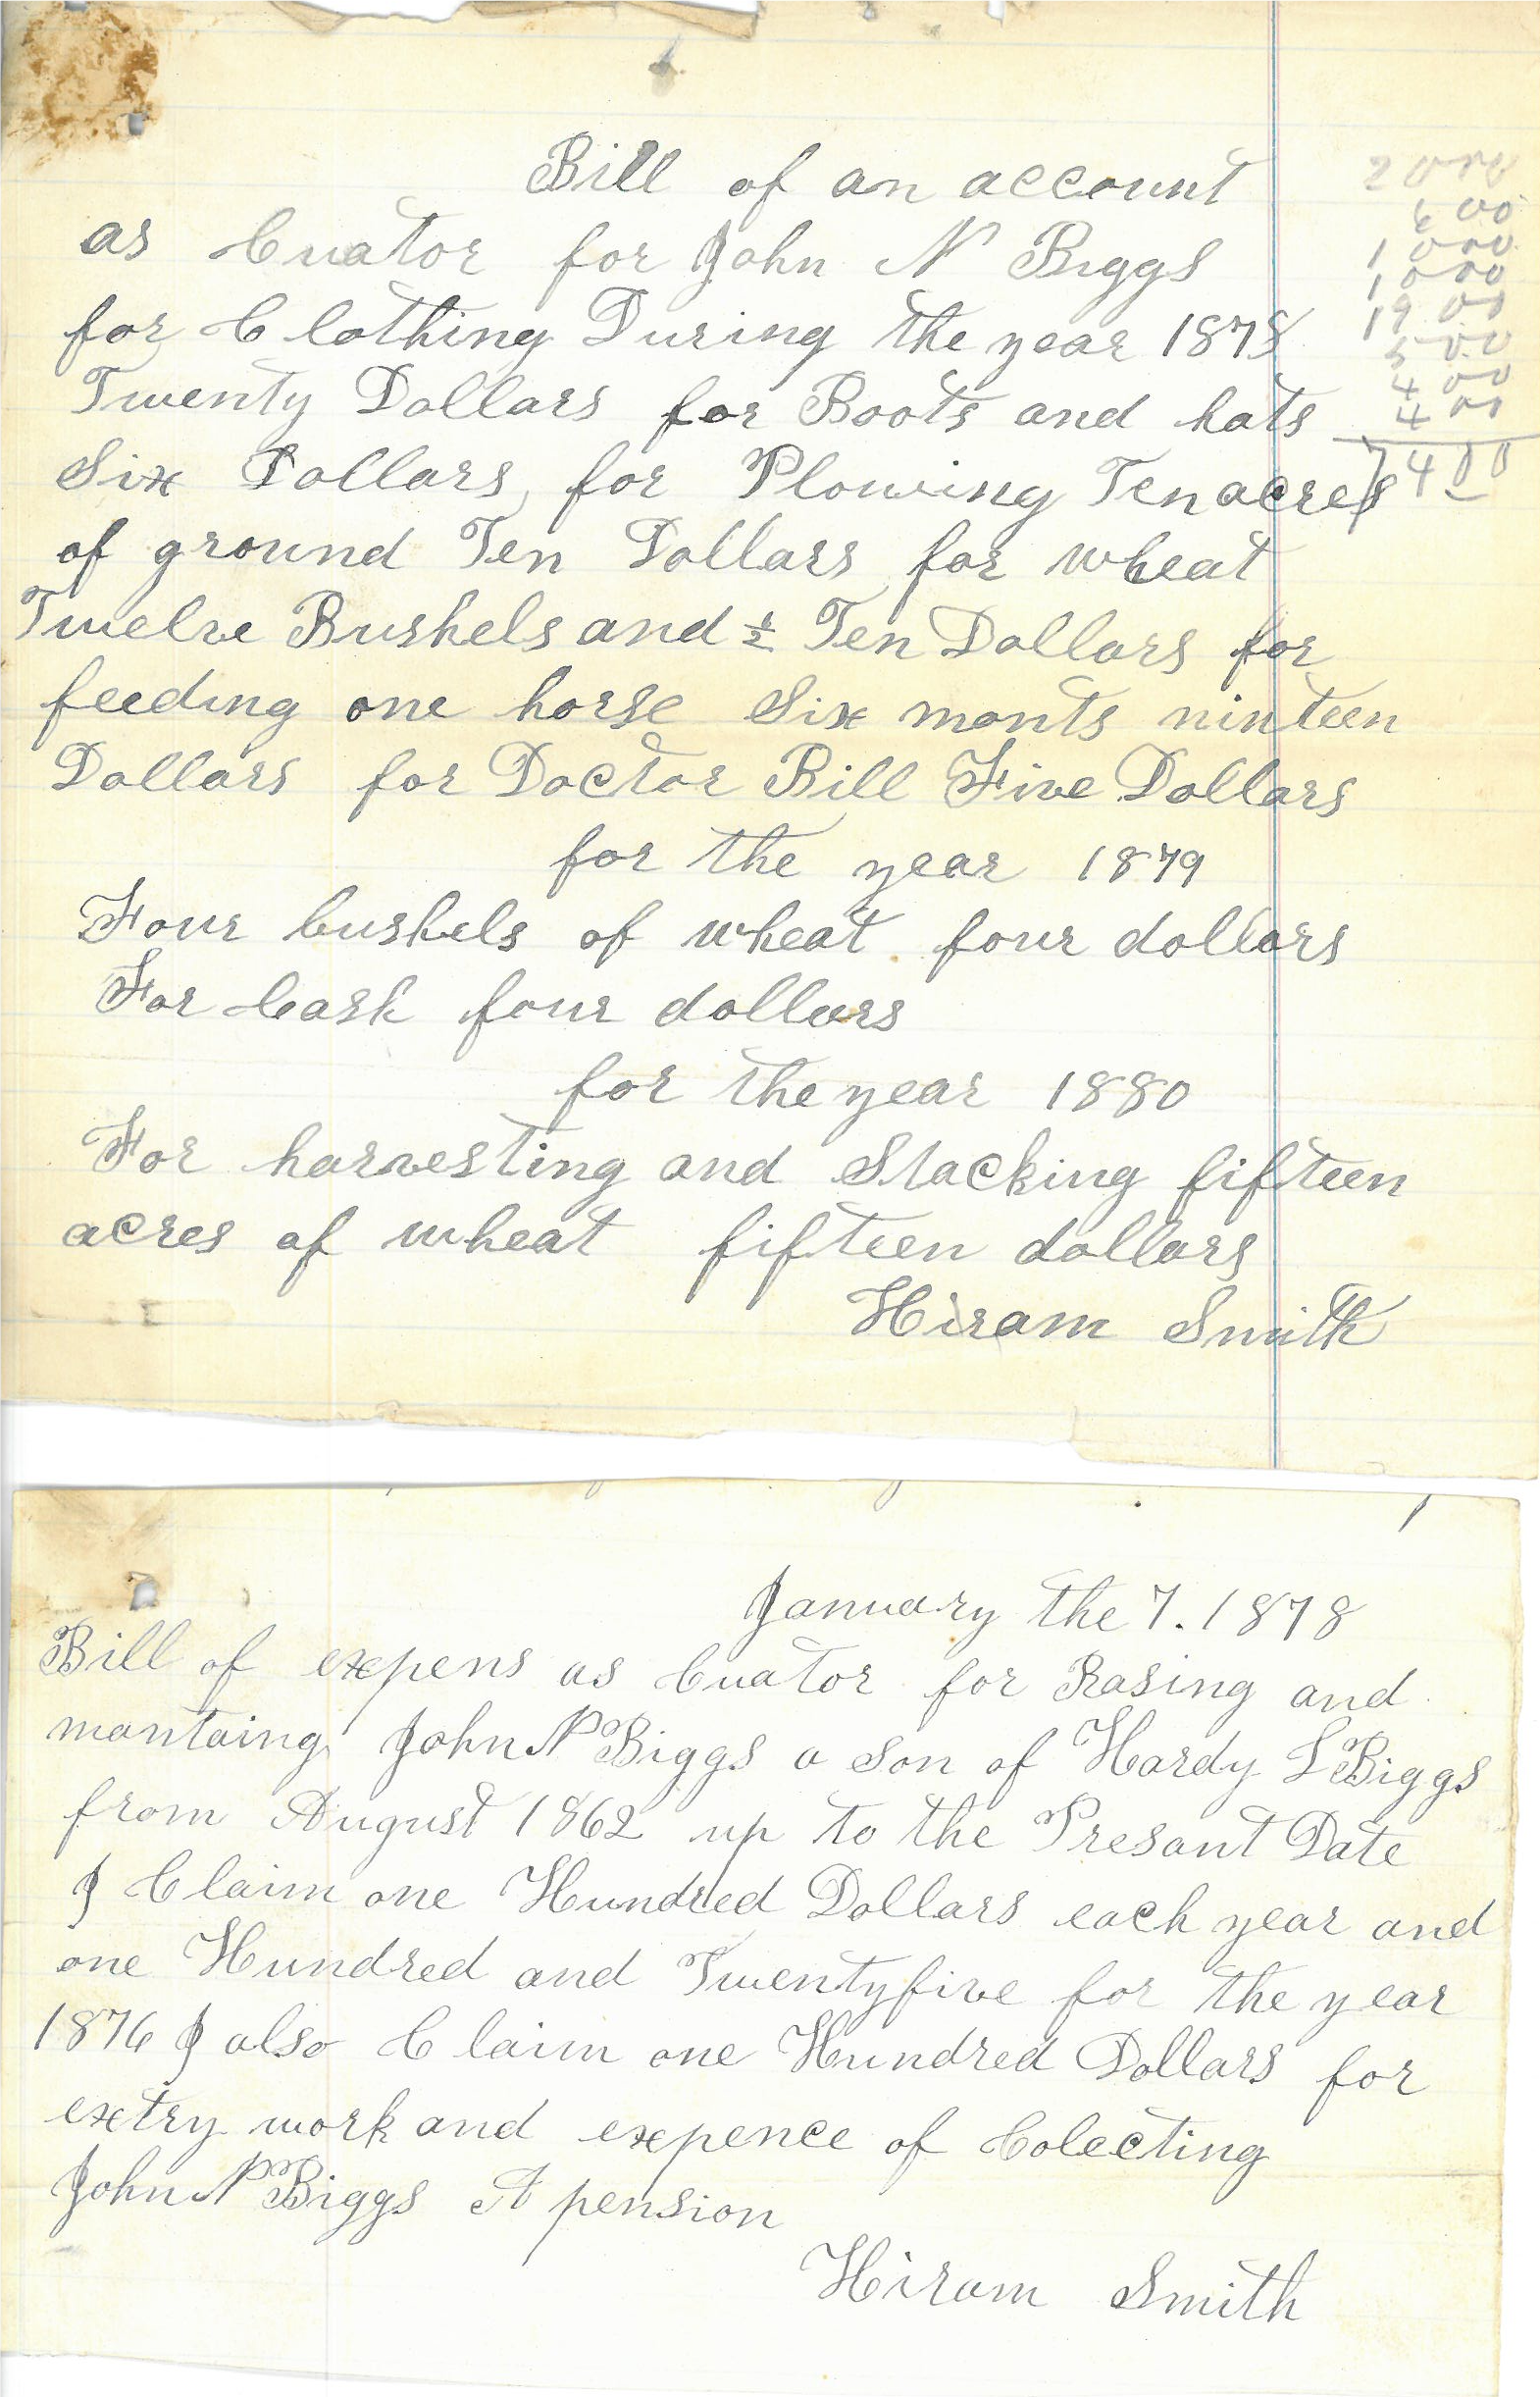 Bill of an account
as Cuator for John N Biggs
for Clothing During the year 1878
Twenty Dollars for Boots and hats
Six Dollars for Plowing Ten acres
of ground Ten Dollars for wheat
Twelve Bushels and ½ Ten Dollars for
feeding one horse Six monts ninteen
Dollars for Doctor Bill Five Dollars
for the year 1879
Four bushels of wheat four dollars
For Cash four dollars
for the year 1880
For harvesting and Stacking fifteen
acres of wheat fifteen dollars
Hiram Smith
2000
600
1000
1000
1900
500
400
400
7400
January the 7. 1878
Bill of expens as Cuator for Rasing and
mantaing John N Biggs a Son of Hardy L Biggs
from August 1862 up to the Presant Date
I Claim one Hundred Dollars each year and
one Hundred and Twentyfive for the year
1876 I also Claim one Hundred Dollars for
extry work and expence of Colecting
John N Biggs A pension
Hiram Smith